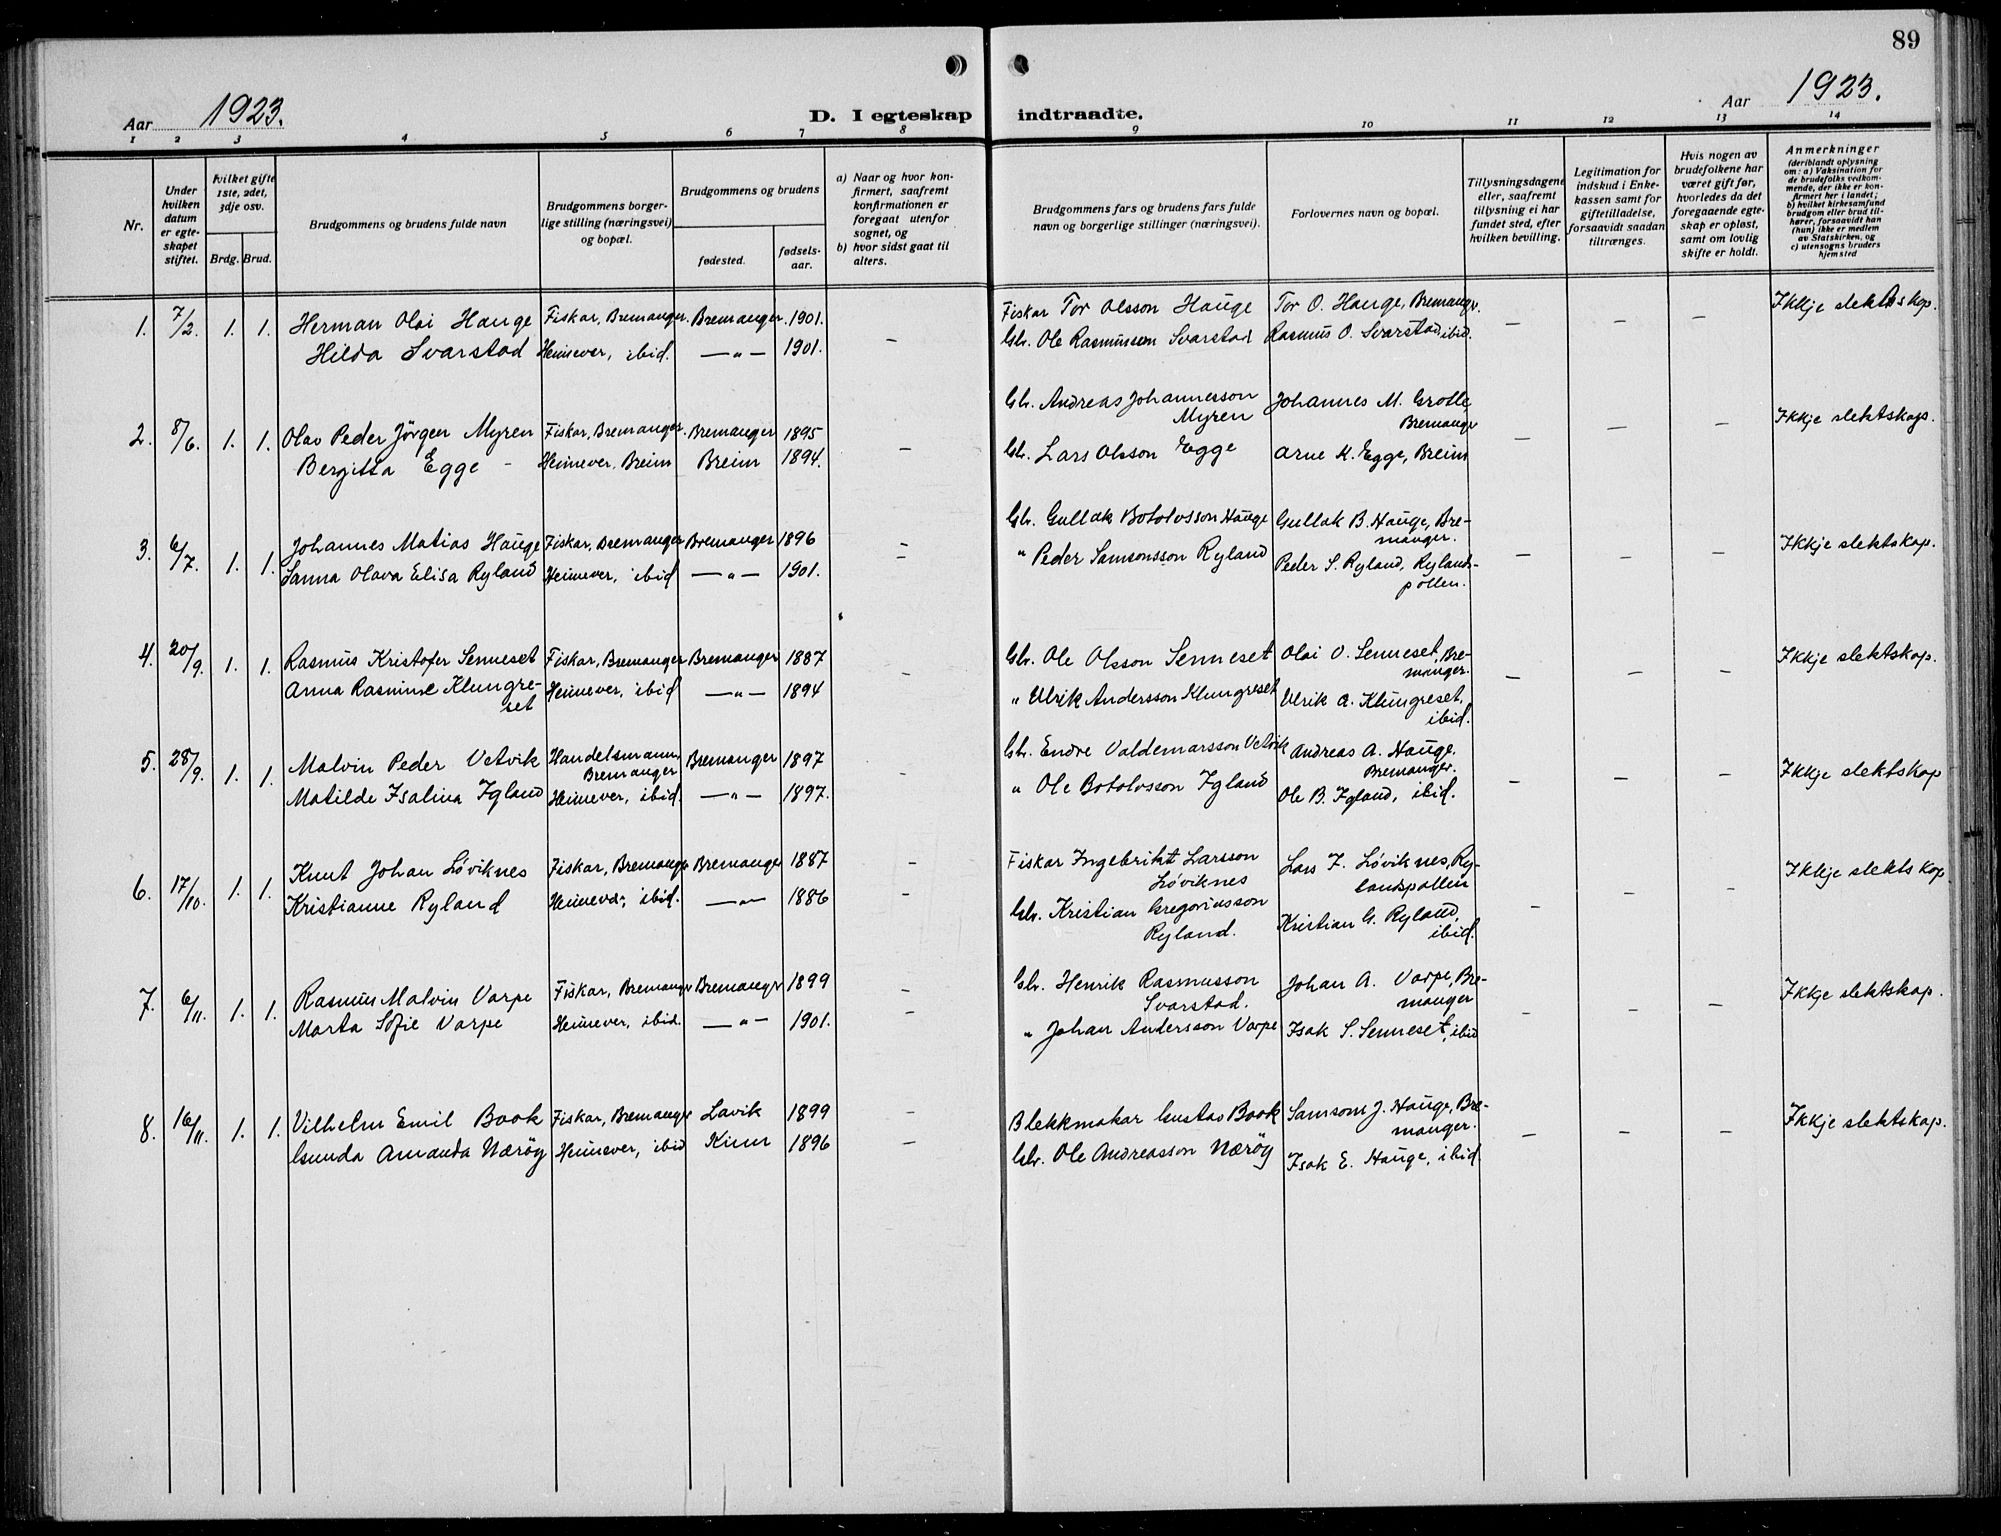 89
Aar 1923.
D. I egteskap indtraadte.
Aar 1923.
1 2 3 4 5 6 7 8 9 10 11 12 13 14
Nr.
Under hvilken datum er egteskapet stiftet.
Hvilket gifte 1ste, 2det, 3dje osv.
Brdg. Brud.
Brudgommens og brudens fulde navn
Brudgommens borgerlige stilling (næringsvei) og bopæl.
Brudgommens og brudens
fødested.
fødselsaar.
a) Naar og hvor konfirmert, saafremt konfirmationen er foregaat utenfor sognet, og
b) hvor sidst gaat til alters.
Brudgommens fars og brudens fars fulde navn og borgerlige stillinger (næringsvei).
Forlovernes navn og bopæl.
Tillysningsdagene eller, saafremt tillysning ei har fundet sted, efter hvilken bevilling.
Legitimation for indskud i Enkekassen samt for giftetilladelse, forsaavidt saadan tiltrænges.
Hvis nogen av brudefolkene har været gift før, hvorledes da det foregaaende egteskap er opløst, samt om lovlig skifte er holdt.
Anmerkninger
(deriblandt oplysning om: a) Vaksination for de brudefolks vedkommende, der ikke er konfirmert her i landet; b) hvilket kirkesamfund brudgom eller brud tilhører, forsaavidt han (hun) ikke er medlem av Statskirken, og c) utensogns bruders hjemsted
1. 7/2. 1. 1. Herman Olai Hauge Fiskar, Bremanger. Bremanger. 1901. Fiskar Tor Olsson Hauge Tor O. Hauge, Bremanger. — — — Ikkje slektskap.
Hilda Svarstad Heimever, ibid. —"— 1901. — Gbr. Ole Rasmussen Svarstad Rasmus O. Svarstad, ibid.
2. 8/6. 1. 1. Olav Peder Jörgen Myren Fiskar, Bremanger. Bremanger 1895 Gbr. Andreas Johannesson Myren Johannes M. Grotle, Bremanger — — — Ikkje slektskap.
Bergitta Egge - Heimever, Breim Breim 1894. — Gbr. Lars Olsson Egge Arne K. Egge, Breim
3. 6/7. 1. 1. Johannes Matias Hauge Fiskar, Bremanger Bremanger 1896 — Gbr. Gullak Botolvsson Hauge Gullak B. Hauge, Bremanger. — — — Ikkje slektskap.
Sanna Olava Elisa Ryland Heimever, ibid —"— 1901. — " Peder Samsonsson Ryland Peder S. Ryland, Rylandspollen.
4. 20/9. 1. 1. Rasmus Kristofer Senneset Fiskar, Bremanger Bremanger 1887 Gbr. Ole Olsson Senneset Olai O. Senneset, Bremanger. — — — Ikkje slektskap.
Anna Rasmine Klungreset Heimever, ibid —"— 1894 — " Ulrik Andersson Klungreset Ulrik A. Klungreset, ibid.
5. 28/9. 1. 1. Malvin Peder Vetvik Handelsmann Bremanger Bremanger 1897 Gbr. Endre Valdemarsson Vetvik Andreas A. Hauge. Bremanger. — — — Ikkje slektskap
Matilde Isalina Igland Heimever, ibid. —"— 1897. " Ole Botolvsson Igland Ole B. Igland, ibid.
6. 17/10. 1. 1. Knut Johan Löviknes Fiskar, Bremanger Bremanger 1887 — Fiskar Ingebrikt Larsson Löviknes Lars I. Löviknes, Rylandspollen — — — Ikkje slektskap.
Kristianne Ryland Heimever, ibid. —"— 1886 Gbr. Kristian Gregoriusson Ryland. Kristian G. Ryland, ibid.
7. 6/11. 1. 1. Rasmus Malvin Varpe Fiskar, Bremanger Bremanger 1899 — Gbr. Henrik Rasmusson Svarstad. Johan A. Varpe, Bremanger — — — Ikkje slektskap.
Marta Sofie Varpe Heimever, ibid. —"— 1901. — " Johan Andersson Varpe Isak S. Senneset, ibid
8. 16/11. 1. 1. Vilhelm Emil Book Fiskar, Bremanger Lavik 1899 — Blekkmakar Gustav Book Samson J. Hauge, Bremanger. — — — Ikkje slektskap.
Gunda Amanda Nærøy Heimever, ibid Kinn 1896 — Gbr. Ole Andreasson Nærøy Isak E. Hauge, ibid.